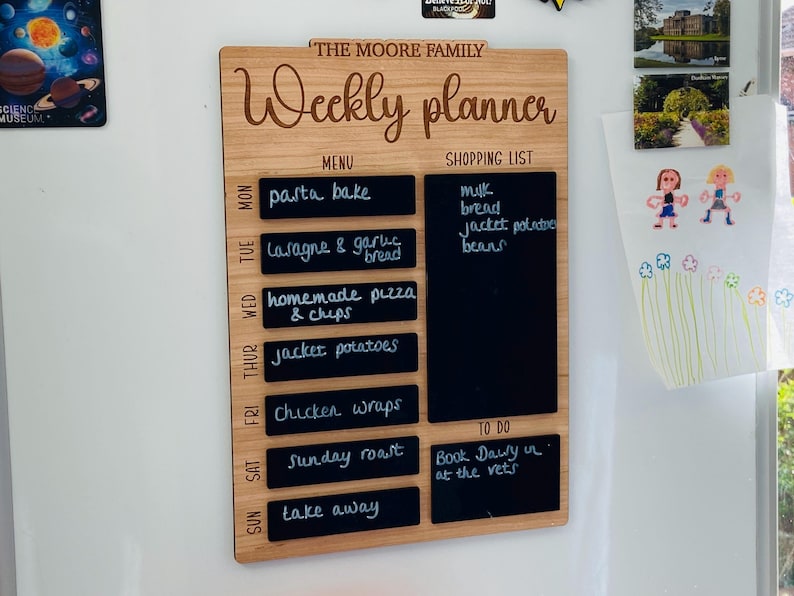 SCIENCE
MUSEUM.
Believe It or Not!
BLACKPOOL
Lyme
Dunham Massey
THE MOORE FAMILY
Weekly planner
MENU
MON
pasta bake
TUE
Lasagne & garlic
bread
WED
homemade pizza
& chips
THUR
jacket potatoes
FRI
Chicken wraps
SAT
sunday roast
SUN
take away
SHOPPING LIST
milk
bread
jacket potatoes
beans
TO DO
Book Dawy in
at the vets